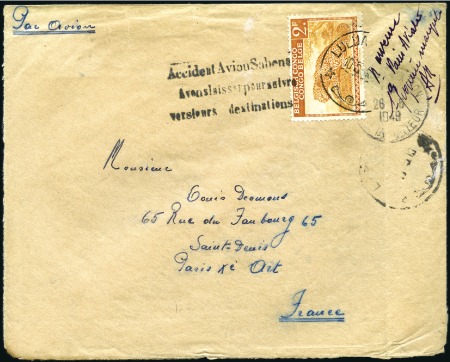 Par Avion
Accident Avion Sabena
Avons laisser poursuivre
versleurs destinations
BELGISCH CONGO
CONGO BELGE
2F
26
1949
Monsieur
Louis Desmons
65 Rue du Faubourg 65
Saint-Denis
Paris Xè Art
France